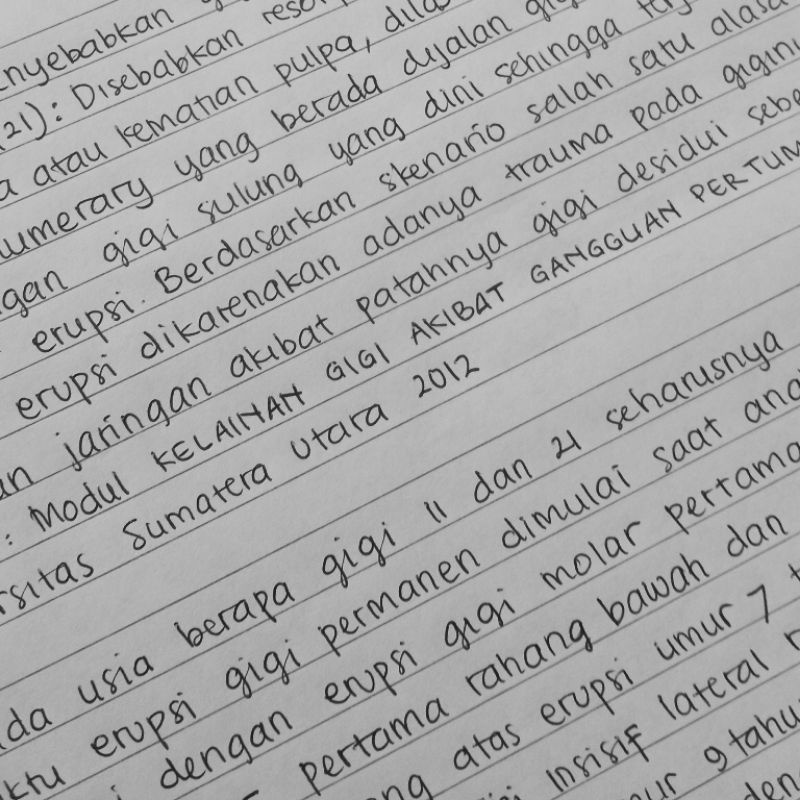 enyebabkan
21): Disebabkan
a atau kematian pulpa,
numerary yang berada dijalan
gan gigi sulung yang dini sehingga
erupsi. Berdasarkan skenario salah satu
erupsi dikarenakan adanya trauma pada
an jaringan akibat patahnya gigi desidui
: Modul KELAINAN GIGI AKIBAT GANGGUAN PERTUM
rsitas Sumatera Utara 2012
da usia berapa gigi 11 dan 21 seharusnya
ktu erupsi gigi permanen dimulai saat
i dengan erupsi gigi molar pertama
pertama rahang bawah dan
ng atas erupsi umur 7
Insisif lateral
9 tahu